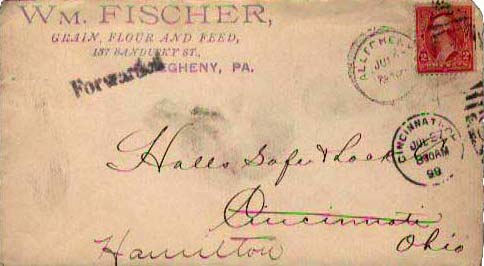 WM. FISCHER,
GRAIN, FLOUR AND FEED,
137 SANDUSKY ST.,
ALLEGHENY, PA.
Forwarded
CINCINNATI
JUL 27
99
Halls Safe & Lock
Cincinnati
Hamilton Ohio